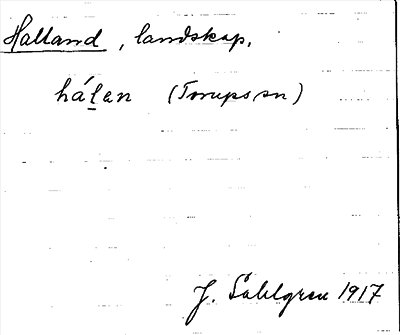 Halland, landskap.
hál̲an (Torups sn)
J. Sahlgren 1917